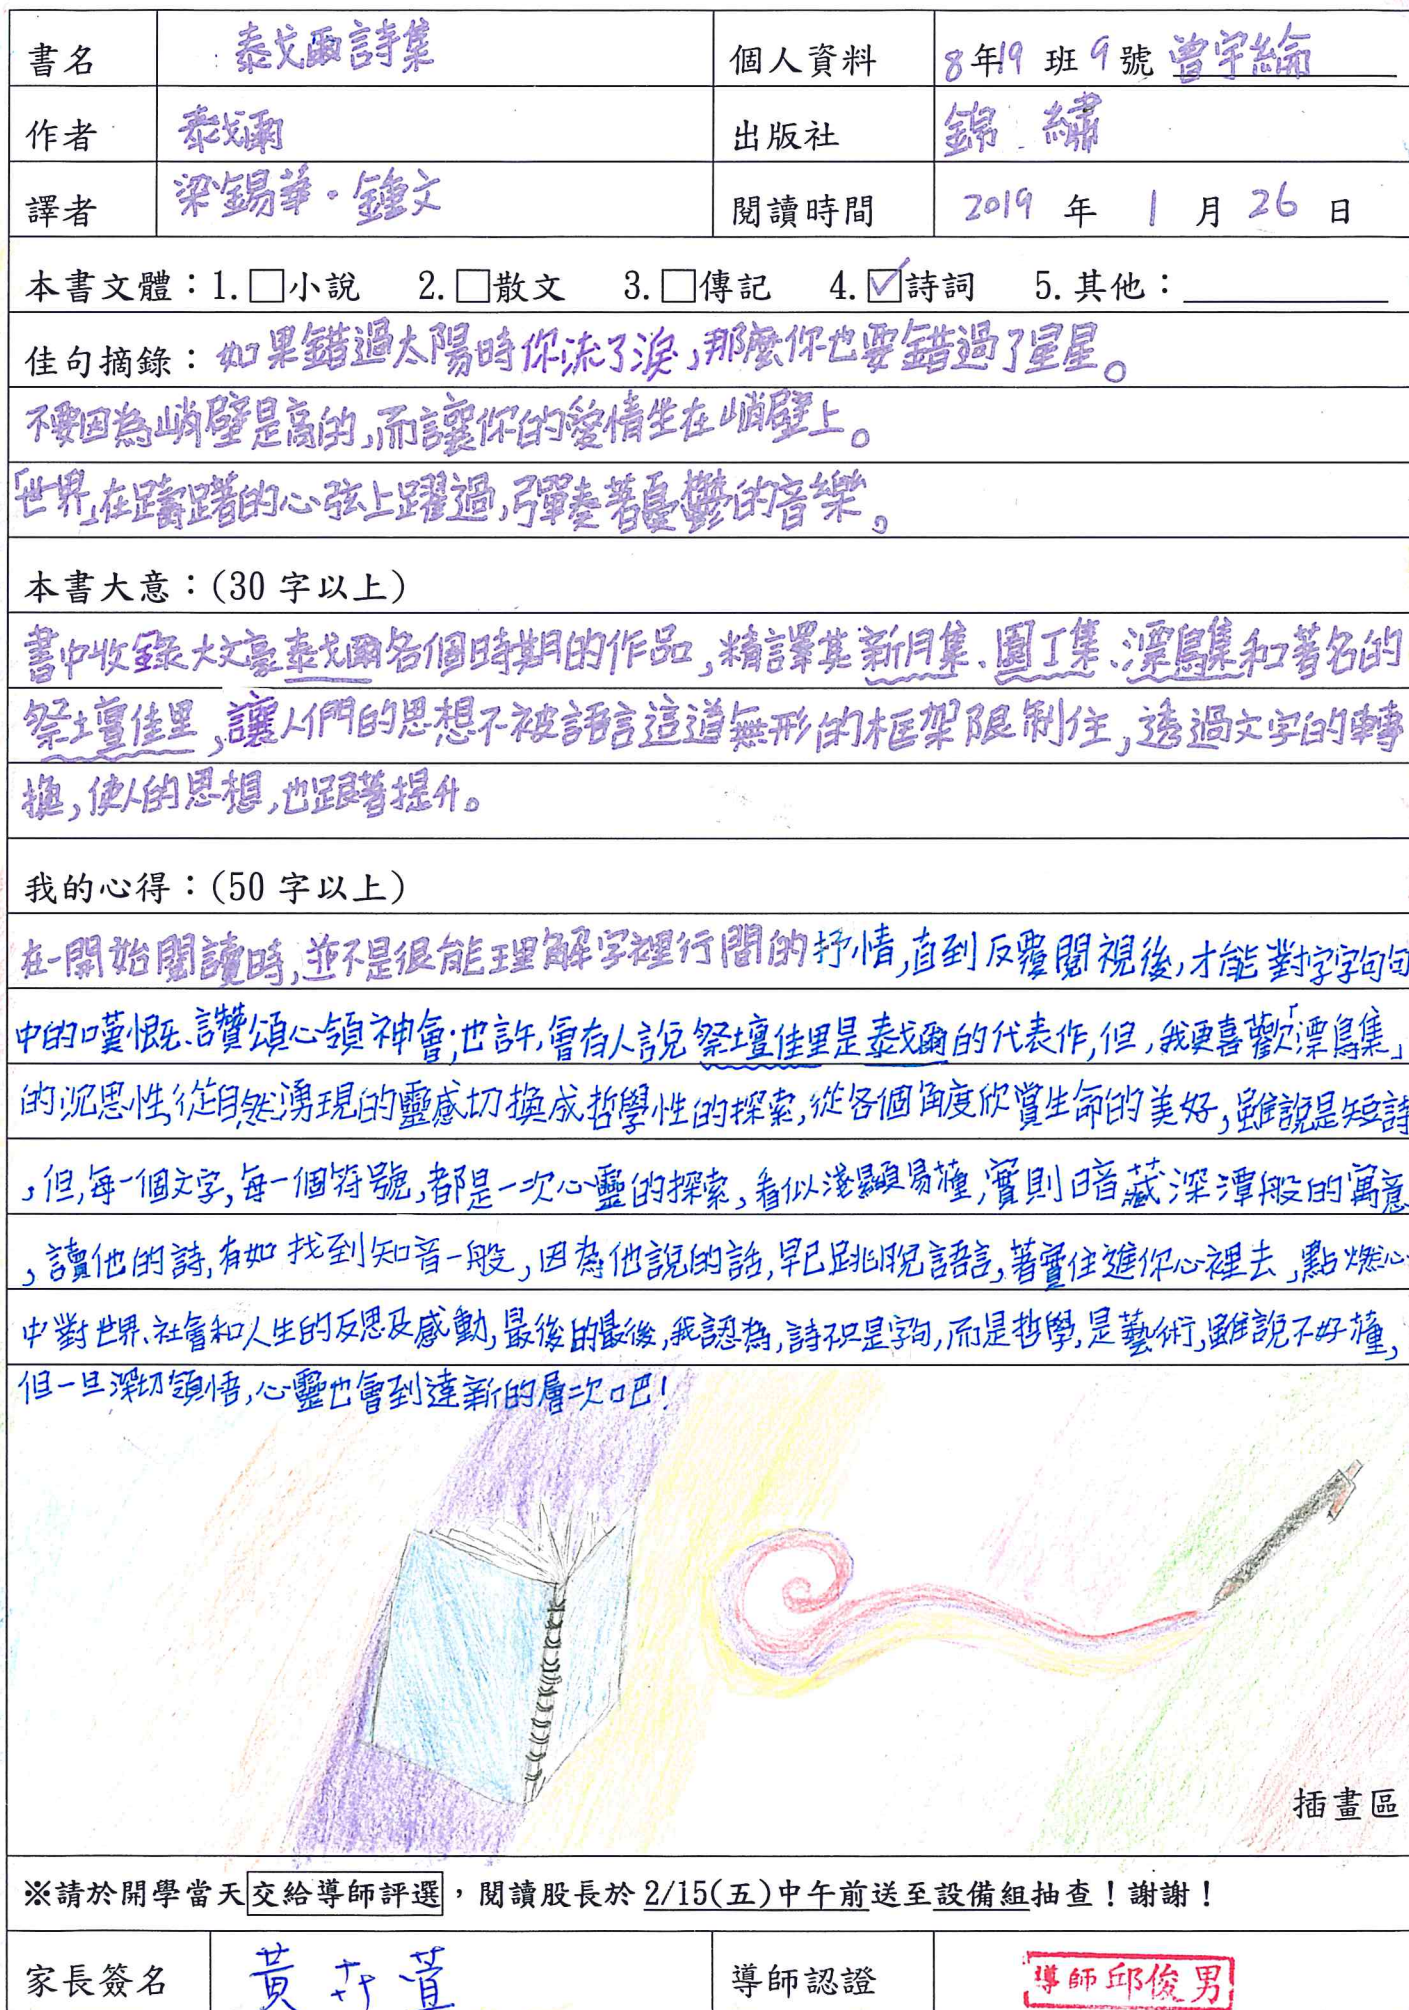 書名 泰戈爾詩集 個人資料 8年19班9號 曾宇綸
作者 泰戈爾 出版社 錦繡
譯者 梁錫華.鍾文 閱讀時間 2019年1月26日
本書文體:1.□小說 2.□散文 3.□傳記 4.☑詩詞 5.其他:
佳句摘錄:如果錯過太陽時你流了淚,那麼你也要錯過了星星。
不要因為峭壁是高的,而讓你的愛情坐在峭壁上。
「世界」在躊躇的心弦上躍過,彈奏著憂鬱的音樂。
本書大意:(30字以上)
書中收錄大文豪泰戈爾各個時期的作品,精譯其新月集、園丁集、漂鳥集和著名的
祭壇佳里,讓人們的思想不被語言這道無形的框架限制住,透過文字的轉
換,使人的思想,也跟著提升。
我的心得:(50字以上)
在一開始閱讀時,並不是很能理解字裡行間的抒情,直到反覆閱視後,才能對字字句句
中的嘆慨、讚頌心領神會;也許,會有人說祭壇佳里是泰戈爾的代表作,但,我更喜歡「漂鳥集」
的沉思性,從自然湧現的靈感切換成哲學性的探索,從各個角度欣賞生命的美好,雖說是短詩
,但,每一個文字,每一個符號,都是一次心靈的探索,看似淺顯易懂,實則暗藏深潭般的寓意
,讀他的詩,有如找到知音一般,因為他說的話,早已跳脫語言,著實住進你心裡去,點燃心
中對世界、社會和人生的反思及感動,最後的最後,我認為,詩不只是字句,而是哲學,是藝術,雖說不好懂,
但一旦深切領悟,心靈也會到達新的層次吧!
插畫區
※請於開學當天交給導師評選,閱讀股長於2/15(五)中午前送至設備組抽查!謝謝!
家長簽名 黃 萱 導師認證 導師邱俊男